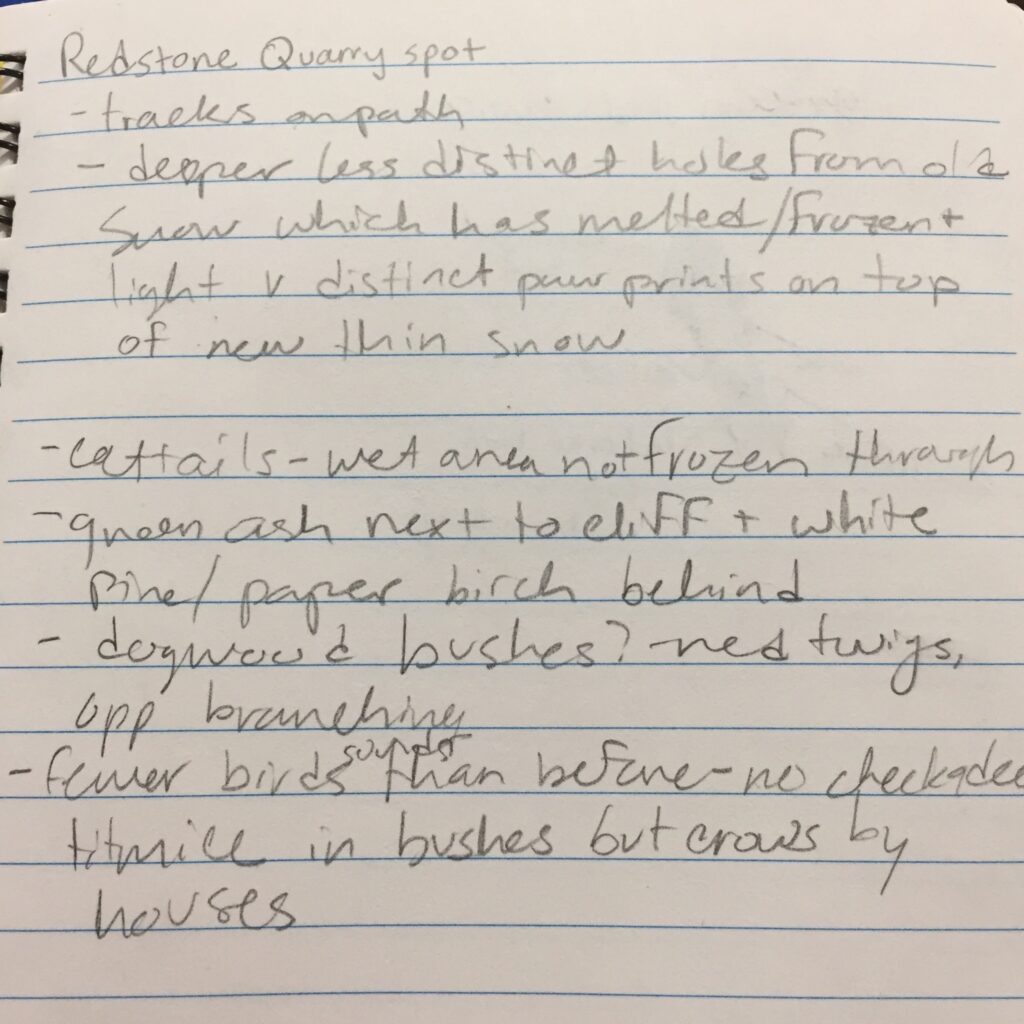 Redstone Quarry spot
- tracks on path
- deeper less distinct holes from old
snow which has melted/frozen +
light v distinct paw prints on top
of new thin snow
- cattails - wet area not frozen through
- green ash next to cliff + white
pine/ paper birch behind
- dogwood bushes? - red twigs,
opp branching
- fewer birds than before - no chickadee
titmice in bushes but crows by
houses